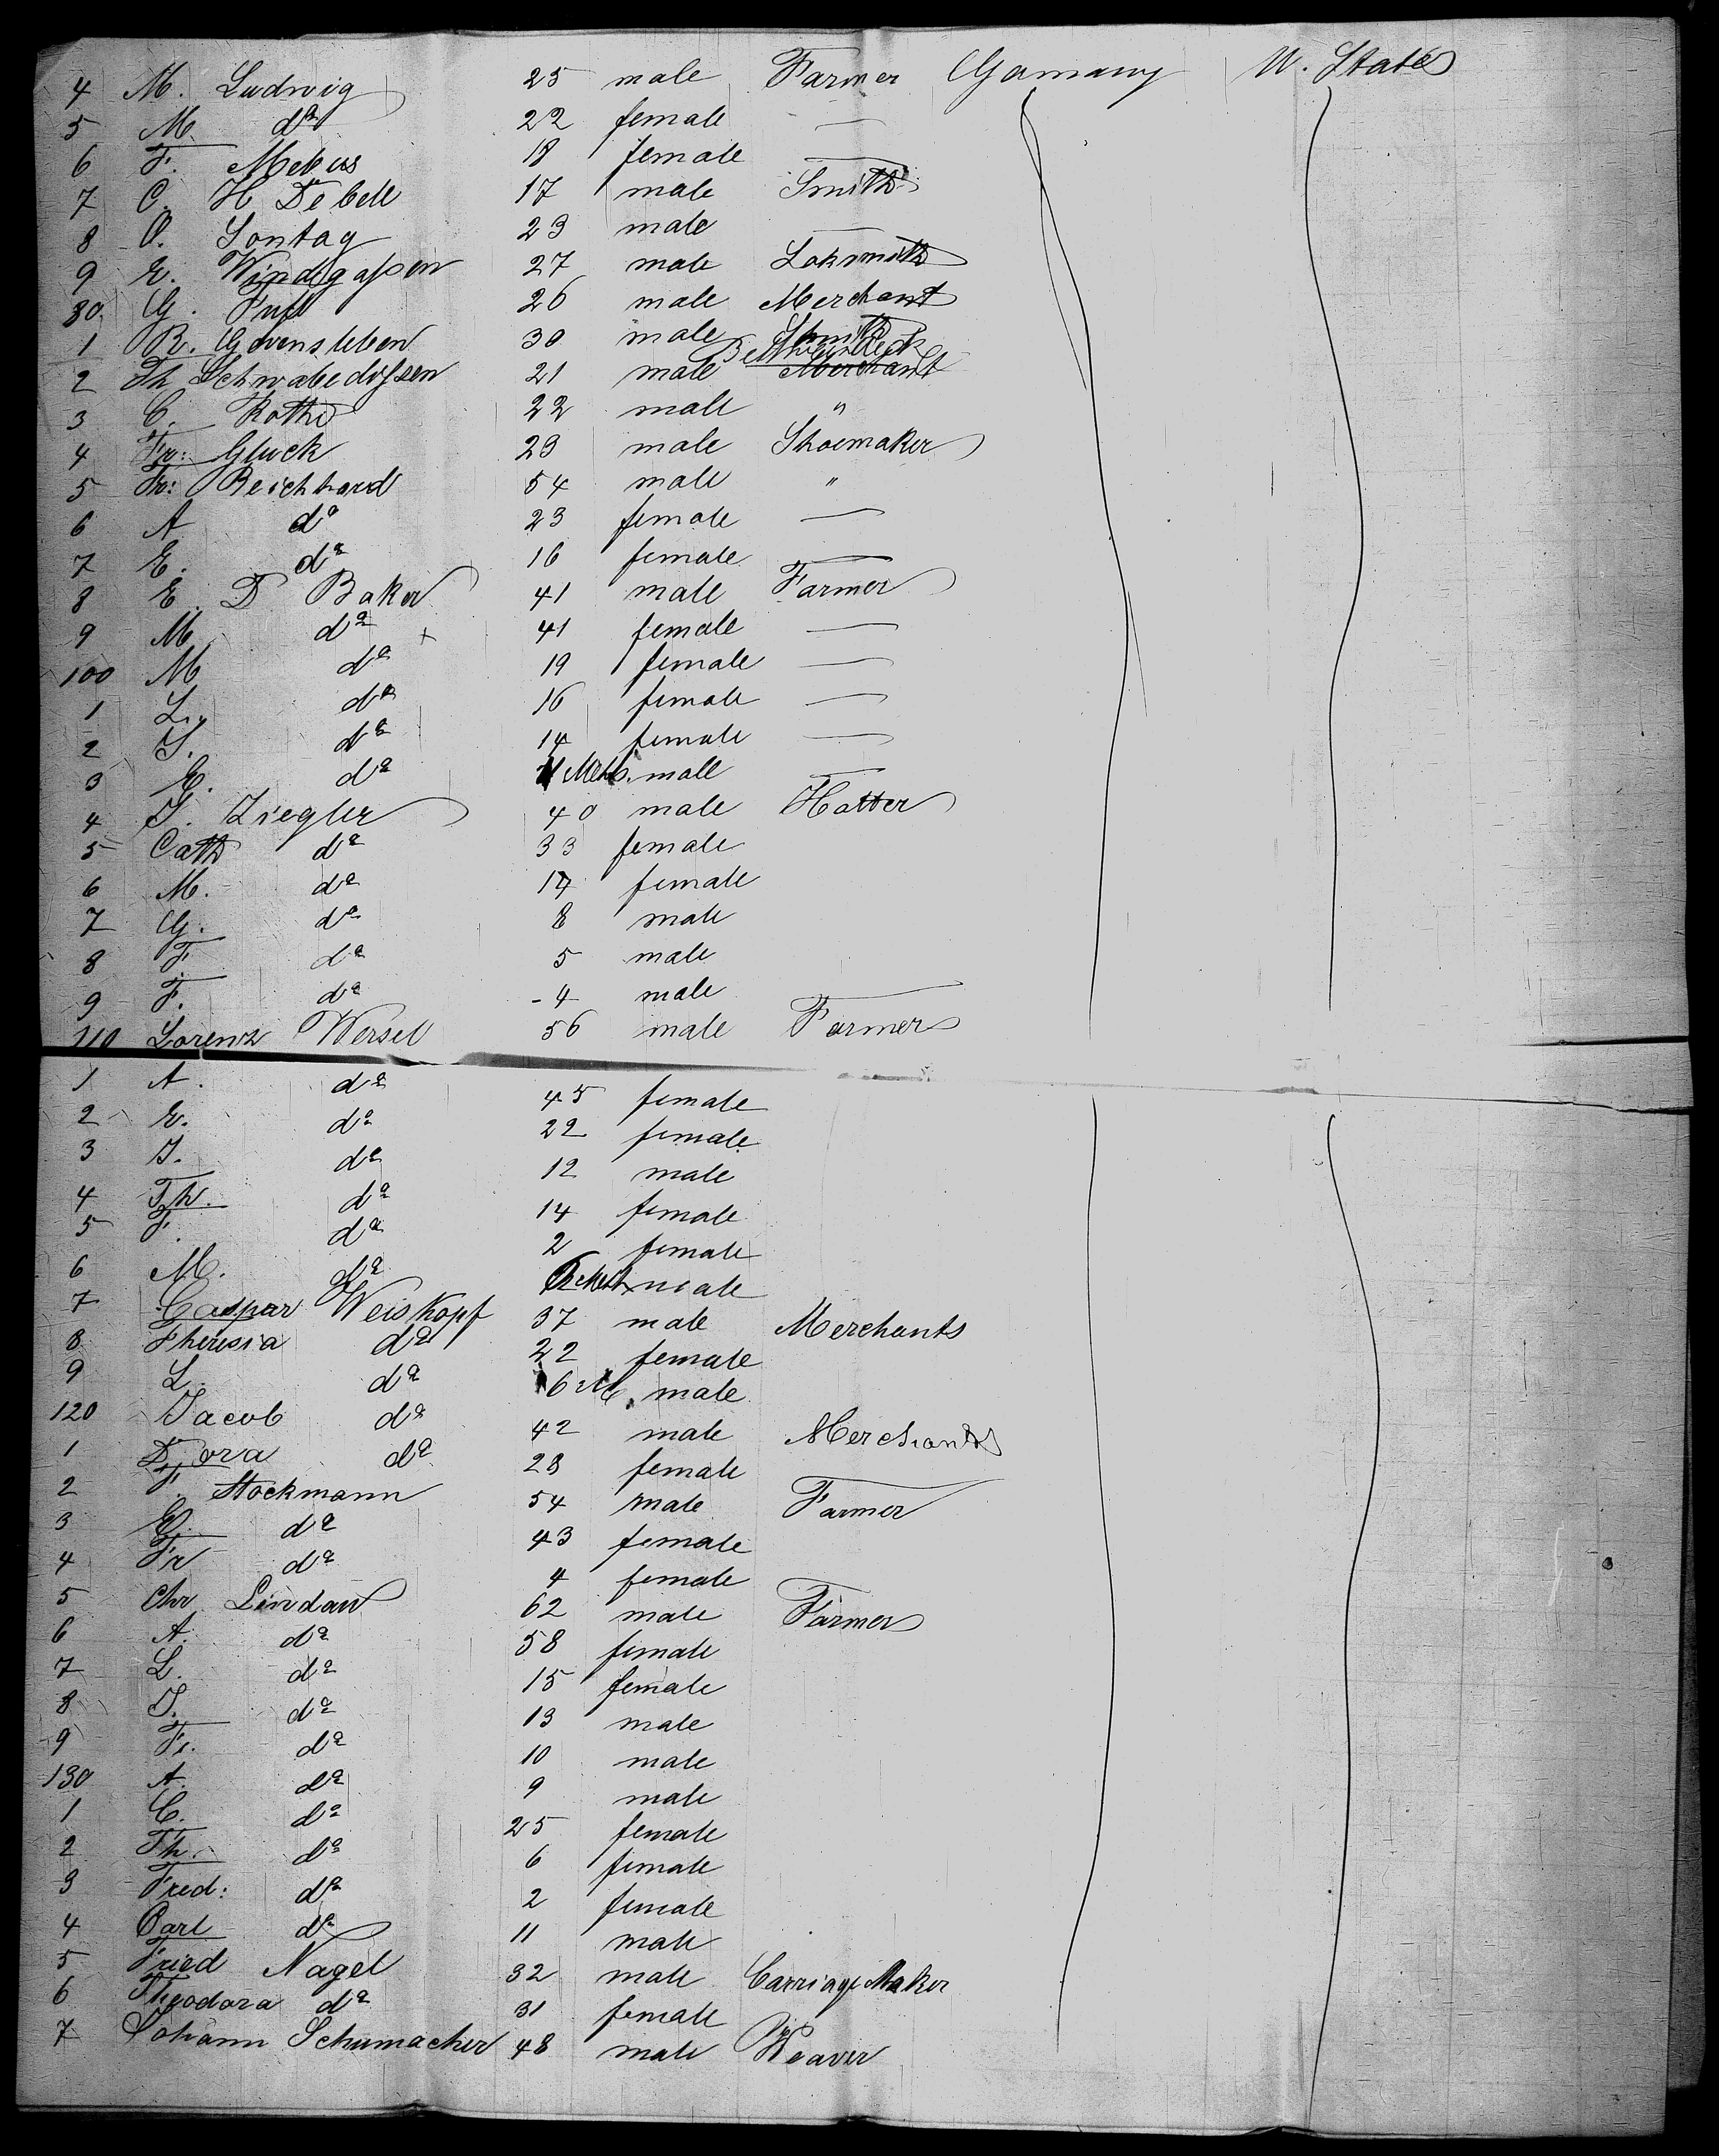 4 M. Ludwig 25 male Farmer Germany U. States
5 M dº 22 female —
6 F. Mebus 18 female —
7 C. H Debell 17 male Smith
8 O. Sontag 23 male —
9 E. 27 male Loksmith
80. G. 26 male Merchant
1 R. 30 male Smith
2 Th Schwabedissen 21 male Merchant
3 C. Rothe 22 male "
4 Fr: Gluck 29 male Shoemaker
5 Fr: Reichhard 54 male "
6 A dº 23 female —
7 E. dº 16 female —
8 E. D Baker 41 male Farmer
9 M dº + 41 female —
100 M dº 19 female —
1 L. dº 16 female —
2 S. dº 14 female —
3 E. dº male —
4 J. Ziegler 40 male Hatter
5 Cath dº 33 female
6 M. dº 14 female
7 G. dº 8 male
8 F. dº 5 male
9 F. dº - 4 male
110 Lorenz Wersel 56 male Farmer
1 A. dº 45 female
2 E. dº 22 female
3 J. dº 12 male
4 Th. dº 14 female
5 F. dº 2 female
6 M. dº male
7 Caspar Weiskopf 37 male Merchants
8 Theresia dº 22 female
9 L. dº 6 M. male
120 Jacob dº 42 male Merchants
1 Dora dº 28 female
2 F. Stockmann 54 male Farmer
3 E. dº 43 female
4 Fr dº 4 female
5 Chr Lindau 62 male Farmer
6 A. dº 58 female
7 L. dº 15 female
8 J. dº 13 male
9 Fr. dº 10 male
130 A. dº 9 male
1 C. dº 25 female
2 Th. dº 6 female
3 Fred: dº 2 female
4 Carl dº 11 male
5 Fried Nagel 32 male Carriage Maker
6 Theodora dº 31 female
7 Johann Schumacher 48 male Weaver